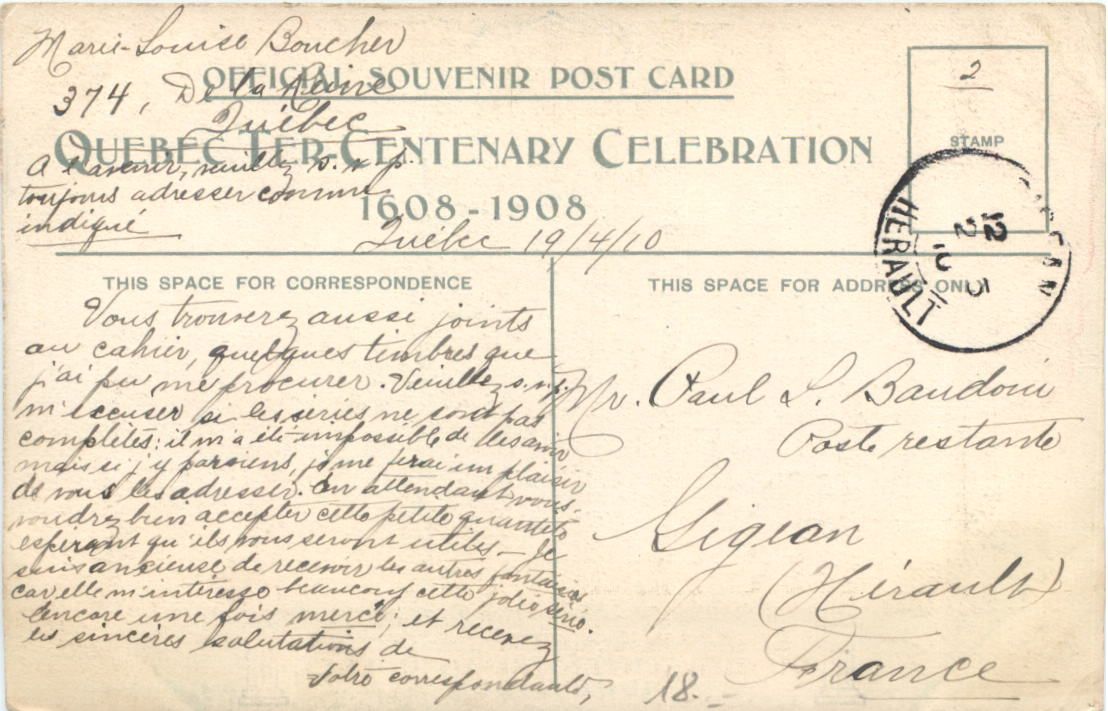 Marie-Louise Boucher
OFFICIAL SOUVENIR POST CARD
374, De la Reine
Québec
QUEBEC TER-CENTENARY CELEBRATION
A l'avenir, veuillez s. v. p.
toujours adresser comme
indiqué
1608-1908
Québec 19/4/10
2
STAMP
GIGEAN
12
2 5
10
HERAULT
THIS SPACE FOR CORRESPONDENCE
Vous trouverez aussi joints
au cahier, quelques timbres que
j'ai pu me procurer. Veuillez s.v.p.
m'excuser si les séries ne sont pas
complètes: il m'a été impossible de les avoir
mais si j'y parviens, je me ferai un plaisir
de vous les adresser. En attendant vous
voudrez bien accepter cette petite quantité
espérant qu'ils vous seront utiles – Je
suis anxieuse de recevoir les autres fantaisies
car elle m'intéresse beaucoup cette jolie série.
Encore une fois merci; et recevez
les sincères salutations de
Votre correspondante,
THIS SPACE FOR ADDRESS ONLY
Mr. Paul L. Baudoin
Poste restante
Gigean
(Hérault)
France
18.-